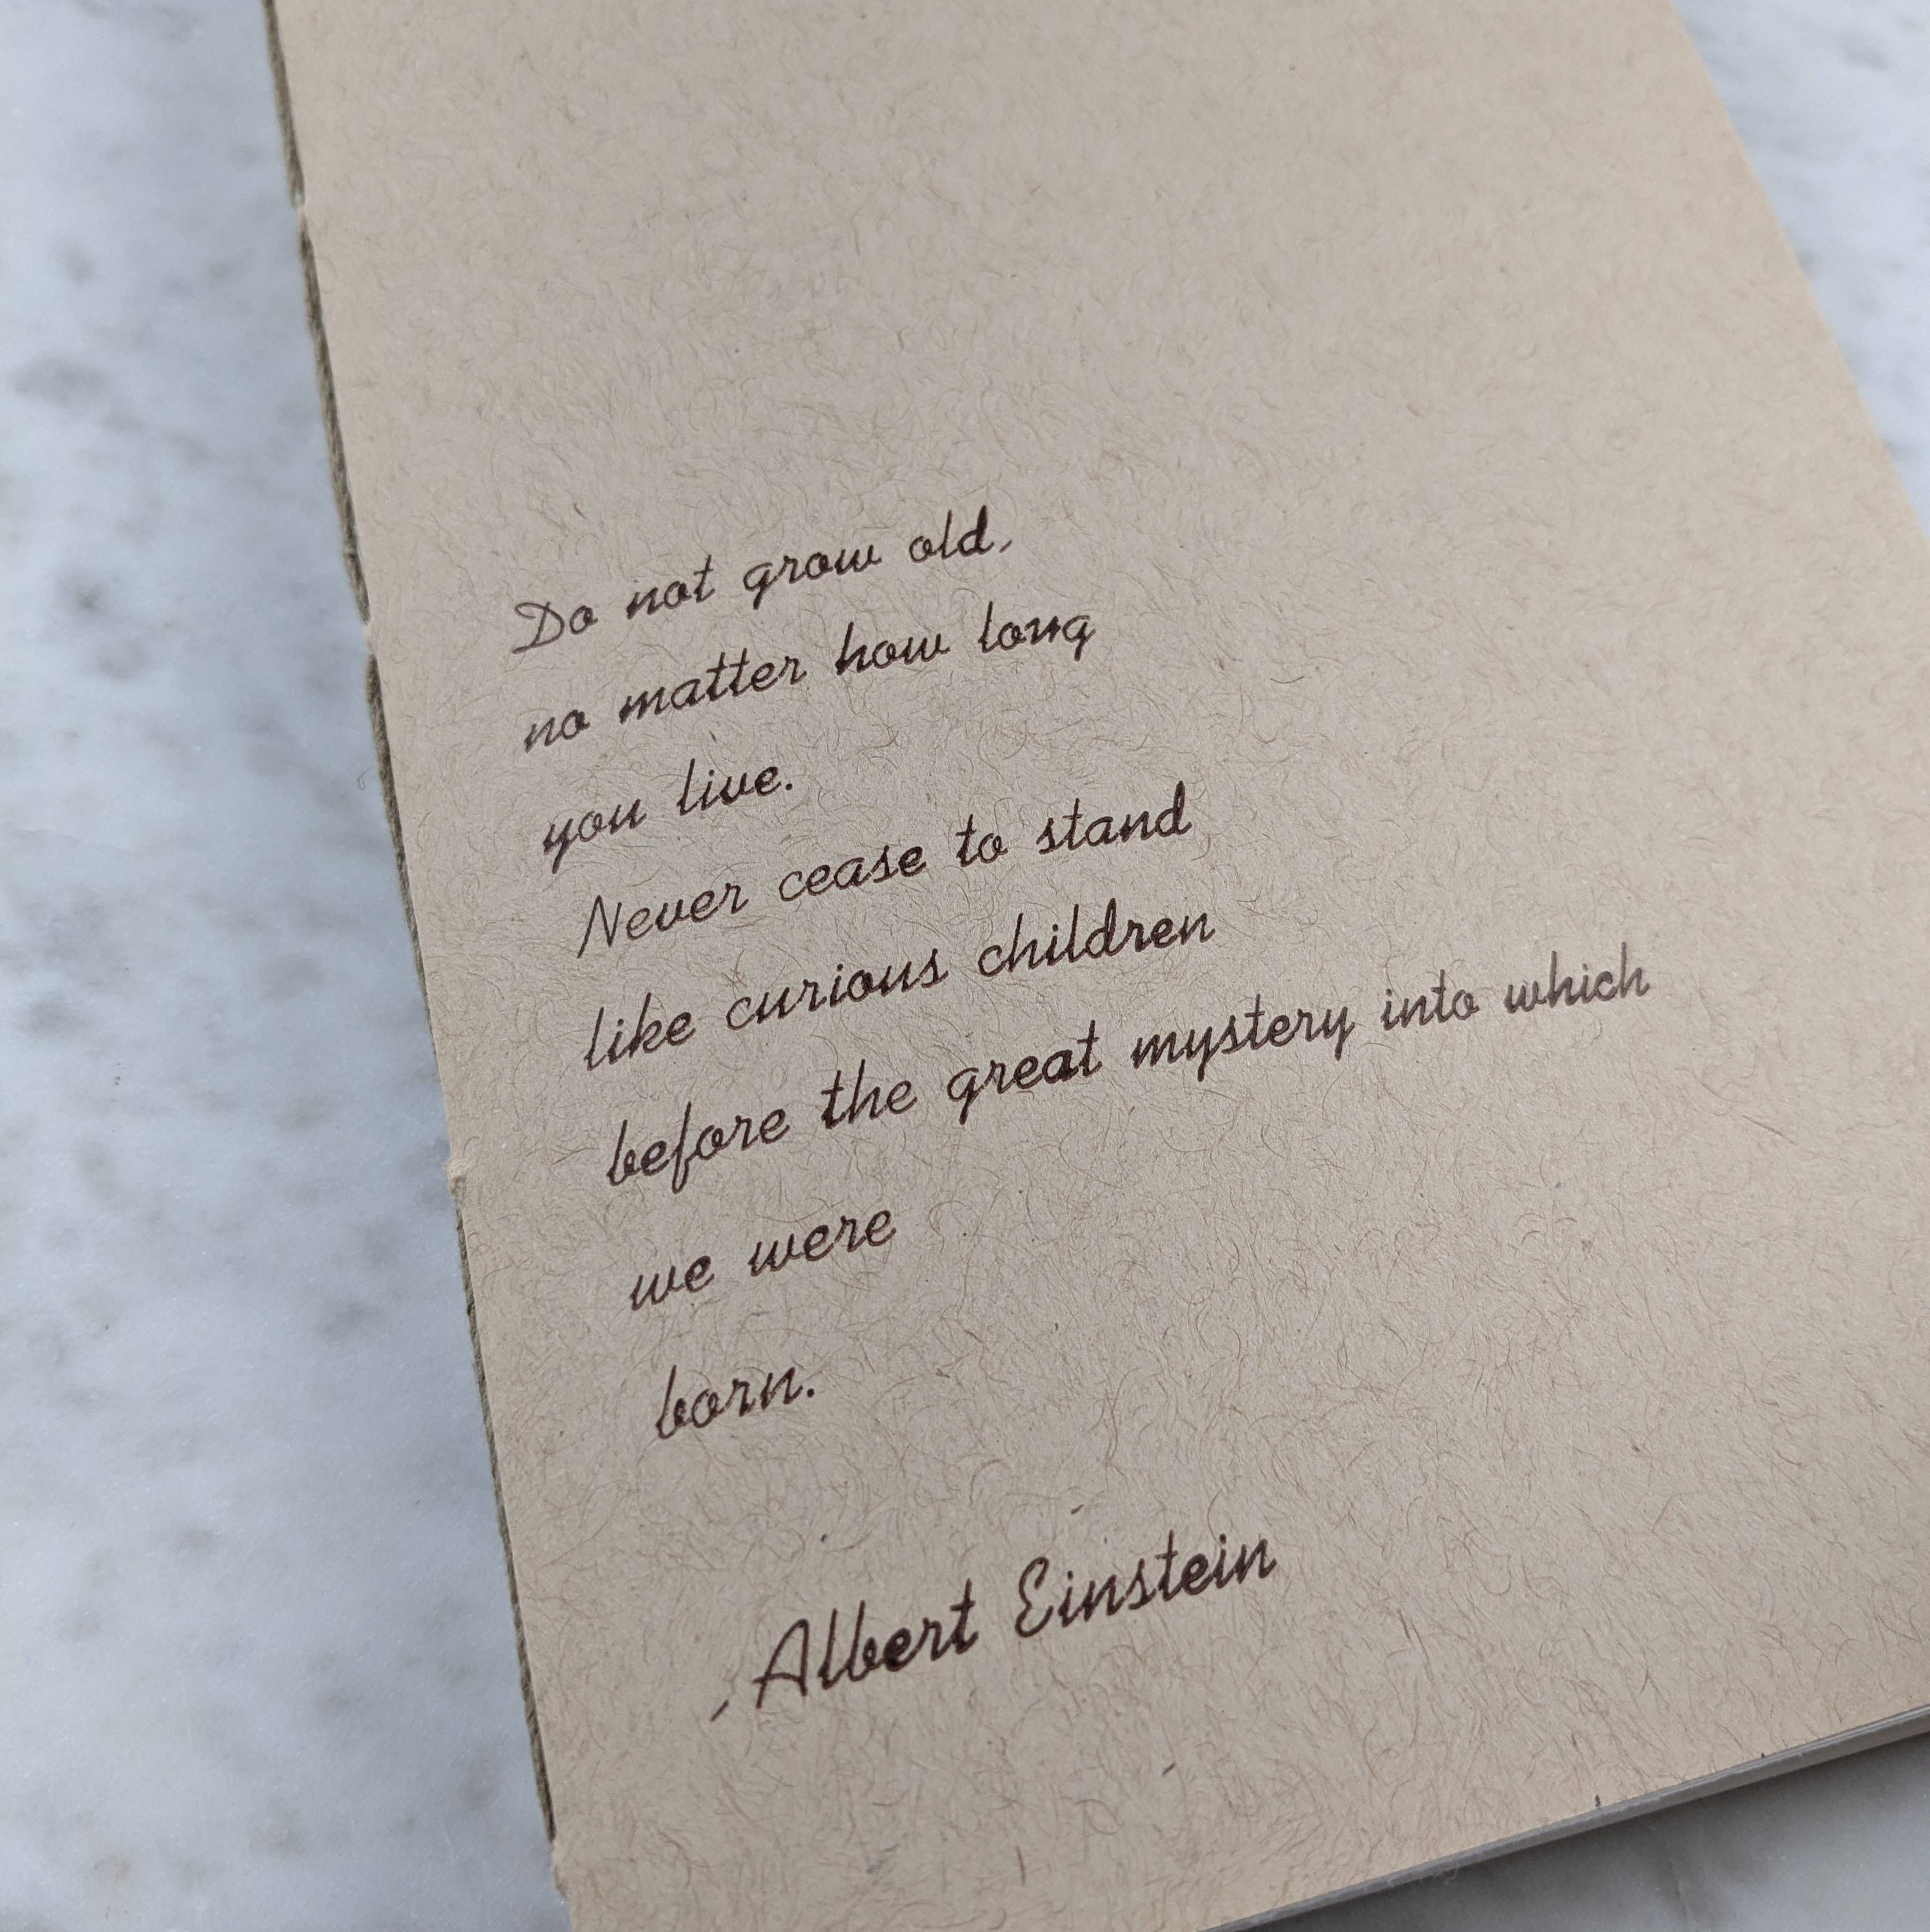 Do not grow old,
no matter how long
you live.
Never cease to stand
like curious children
before the great mystery into which
we were
born.
-Albert Einstein